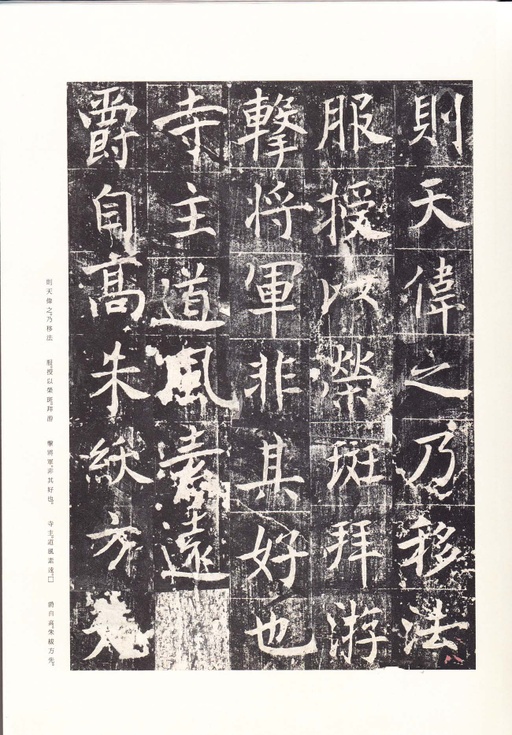 則天偉之乃移法
服授以榮班拜游
擊將軍非其好也
寺主道風素遠
爵自高朱紱方
則天偉之，乃移法　服，授以榮班，拜游　擊將軍，非其好也。　寺主道風素遠，□　爵自高，朱紱方